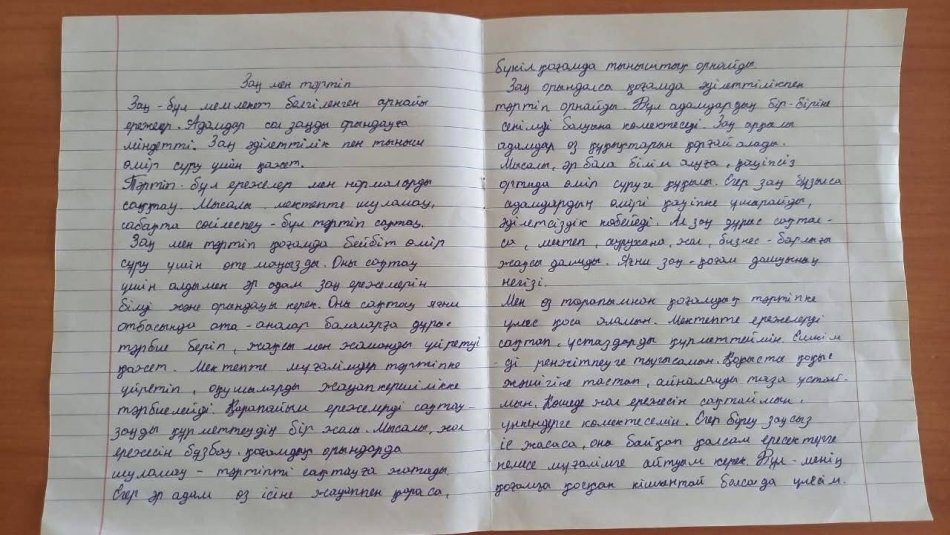 Заң мен тәртіп
Заң - бұл мемлекет белгіленген арнайы
ережелер. Адамдар сол заңды орындауға
міндетті. Заң әділеттілік пен тыныш
өмір сүру үшін қажет.
Тәртіп - бұл ережелер мен нормаларды
сақтау. Мысалы, мектепте шуламау,
сабақта сөйлеспеу - бұл тәртіп сақтау.
Заң мен тәртіп қоғамда бейбіт өмір
сүру үшін өте маңызды. Оны сақтау
үшін алдымен әр адам заң ережелерін
білуі және орындауы керек. Оны сақтау яғни
отбасында ата-аналар балаларға дұрыс
тәрбие беріп, жақсы мен жаманды үйретуі
қажет. Мектепте мұғалімдер тәртіпке
үйретіп, оқушыларды жауапкершілікке
тәрбиелейді. Қарапайым ережелерді сақтау -
заңды құрметтеудің бір жолы. Мысалы, жол
ережесін бұзбау, қоғамдық орындарда
шуламау - тәртіпті сақтауға жатады.
Егер әр адам өз ісіне жауаппен қараса,
бүкіл қоғамда тыныштық орнайды.
Заң орындалса қоғамда әділеттілікпен
тәртіп орнайды. Бұл адамдардың бір-біріне
сенімді болуына көмектеседі. Заң арқылы
адамдар өз құқықтарын қорғай алады.
Мысалы, әр бала білім алуға, қауіпсіз
ортада өмір сүруге құқылы. Егер заң бұзылса
адамдардың өмірі қауіпке ұшырайды,
әділетсіздік көбейеді. Ал заң дұрыс сақтал-
са, мектеп, аурухана, жол, бизнес - барлығы
жақсы дамиды. Яғни заң - қоғам дамуының
негізі.
Мен өз тарапымнан қоғамдық тәртіпке
үлес қоса аламын. Мектепте ережелерді
сақтап, ұстаздарды құрметтеймін. Ешкім
-ді ренжітпеуге тырысамын. Қоқысты қоқыс
жәшігіне тастап, айналамды таза ұстай-
мын. Көшеде жол ережесін сақтаймын,
үлкендерге көмектесемін. Егер біреу заңсыз
іс жасаса, оны байқап қалсам ересектерге
немесе мұғалімге айтуым керек. Бұл - менің
қоғамға қосқан кішкентай болса да үлесім.